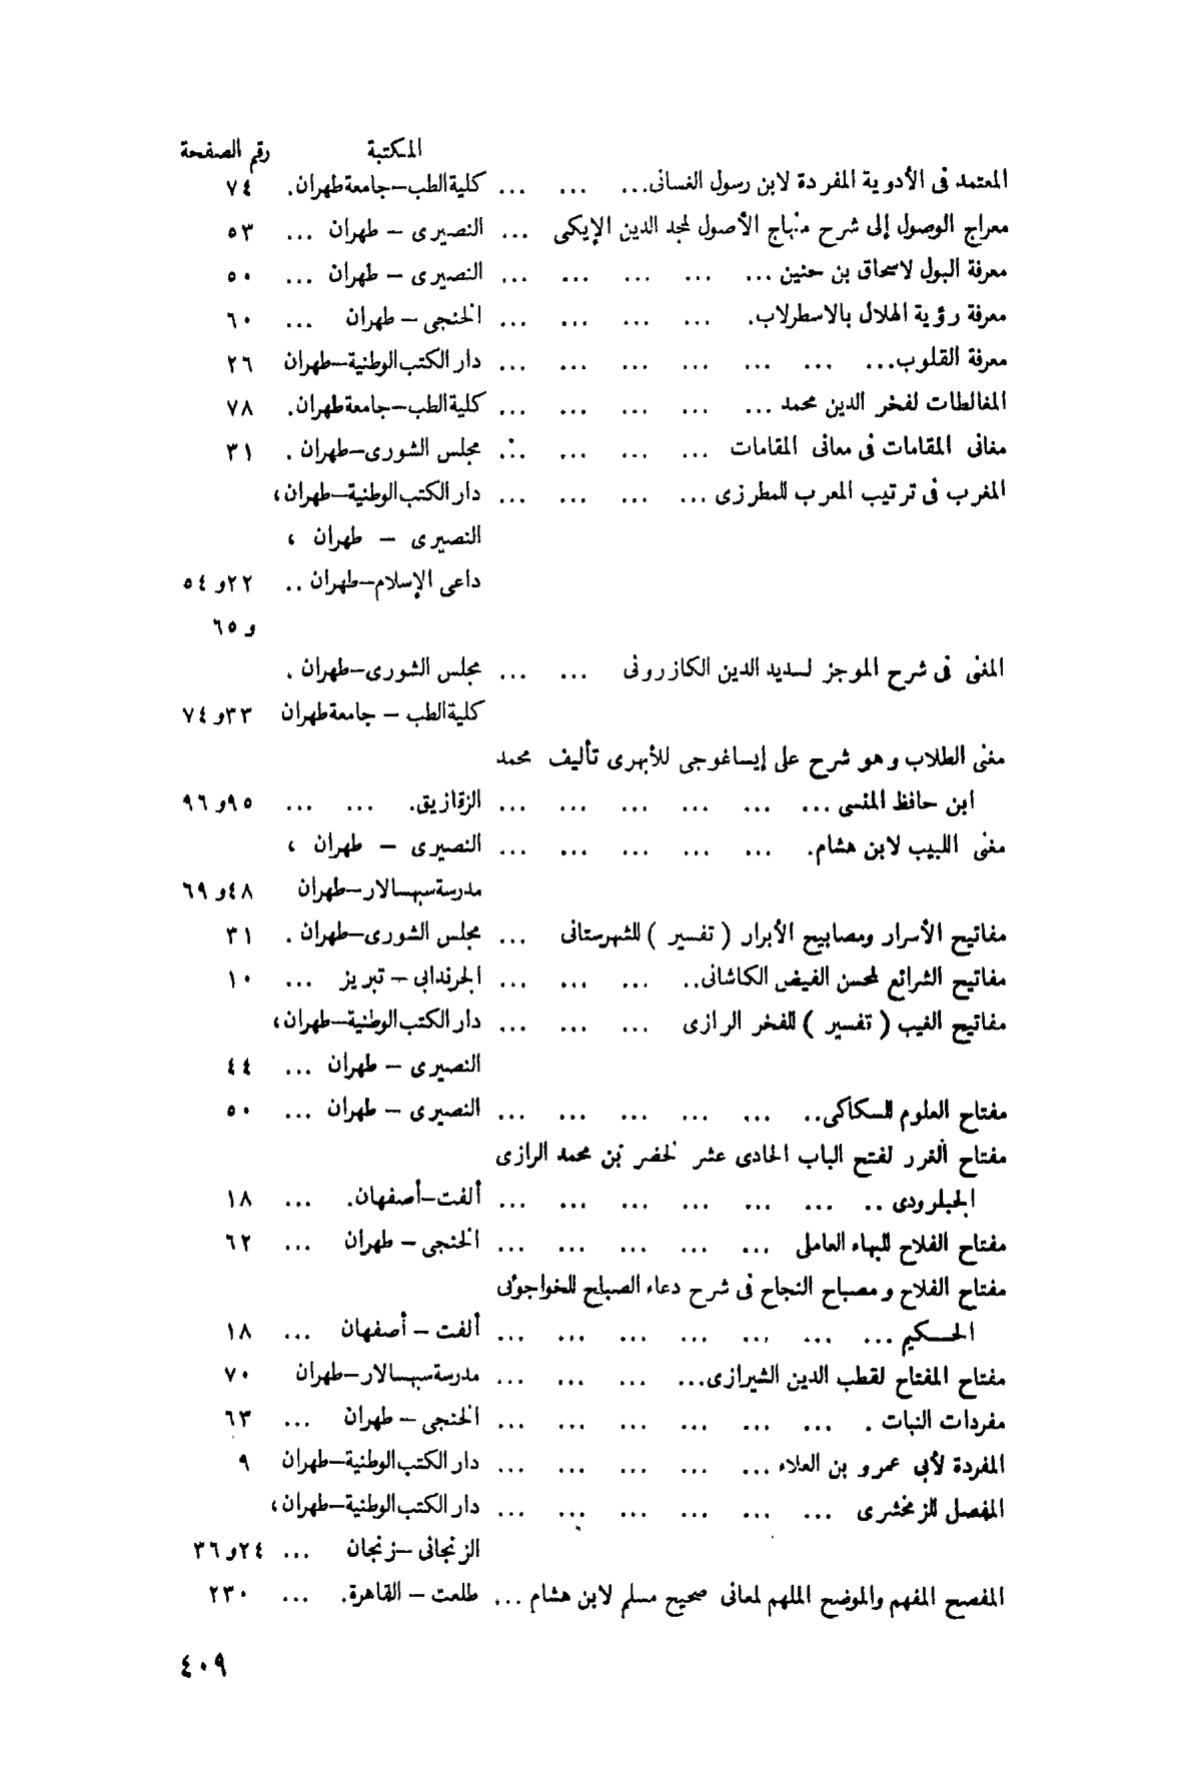 المكتبة رقم الصفحة
المعتمد فى الأدوية المفردة لابن رسول الغسانى... ... ... كلية الطب–جامعة طهران. ٧٤
معراج الوصول إلى شرح منهاج الأصول لمجد الدين الإيكى ... النصيرى – طهران ... ٥٣
معرفة البول لاسحاق بن حنين ... ... ... ... ... النصيرى – طهران ... ٥٠
معرفة رؤية الهلال بالاسطرلاب. ... ... ... ... الخنجى – طهران ... ٦٠
معرفة القلوب... ... ... ... ... ... ... دار الكتب الوطنية–طهران ٢٦
المغالطات لفخر الدين محمد ... ... ... ... ... كلية الطب–جامعة طهران. ٧٨
مغانى المقامات فى معانى المقامات ... ... ... ... مجلس الشورى–طهران . ٣١
المغرب فى ترتيب المعرب للمطرزى ... ... ... ... دار الكتب الوطنية–طهران،
النصيرى – طهران ،
داعى الإسلام–طهران .. ٢٢و٥٤
و٦٥
المغنى فى شرح الموجز لسديد الدين الكازرونى ... ... مجلس الشورى–طهران .
كلية الطب – جامعة طهران ٣٣و٧٤
مغنى الطلاب وهو شرح على إيساغوجى للأبهرى تأليف محمد
ابن حافظ المنسى ... ... ... ... ... ... الزقازيق. ... ... ٩٥و٩٦
مغنى اللبيب لابن هشام. ... ... ... ... ... النصيرى – طهران ،
مدرسة سبهسالار–طهران ٤٨و٦٩
مفاتيح الأسرار ومصابيح الأبرار ( تفسير ) للشهرستانى ... مجلس الشورى–طهران . ٣١
مفاتيح الشرائع لمحسن الفيض الكاشانى.. ... ... ... الجرندابى – تبريز ... ١٠
مفاتيح الغيب ( تفسير ) للفخر الرازى ... ... ... دار الكتب الوطنية–طهران،
النصيرى – طهران ... ٤٤
مفتاح العلوم للسكاكى.. ... ... ... ... ... النصيرى – طهران ... ٥٠
مفتاح الغرر لفتح الباب الحادى عشر لخضر بن محمد الرازى
الحبلرودى .. ... ... ... ... ... ... ألفت–أصفهان. ... ١٨
مفتاح الفلاح للبهاء العاملى ... ... ... ... ... الخنجى – طهران ... ٦٢
مفتاح الفلاح ومصباح النجاح فى شرح دعاء الصباح للخواجوئى
الحكيم ... ... ... ... ... ... ... ألفت – أصفهان ... ١٨
مفتاح المفتاح لقطب الدين الشيرازى... ... ... ... مدرسة سبهسالار–طهران ٧٠
مفردات النبات . ... ... ... ... ... ... الخنجى – طهران ... ٦٣
المفردة لأبى عمرو بن العلاء ... ... ... ... ... دار الكتب الوطنية–طهران ٩
المفصل للزمخشرى ... ... ... ... ... ... دار الكتب الوطنية–طهران،
الزنجانى –زنجان ... ٢٤و٣٦
المفصح المفهم والموضح الملهم لمعانى صحيح مسلم لابن هشام ... طلعت – القاهرة. ... ٢٣٠
٤٠٩